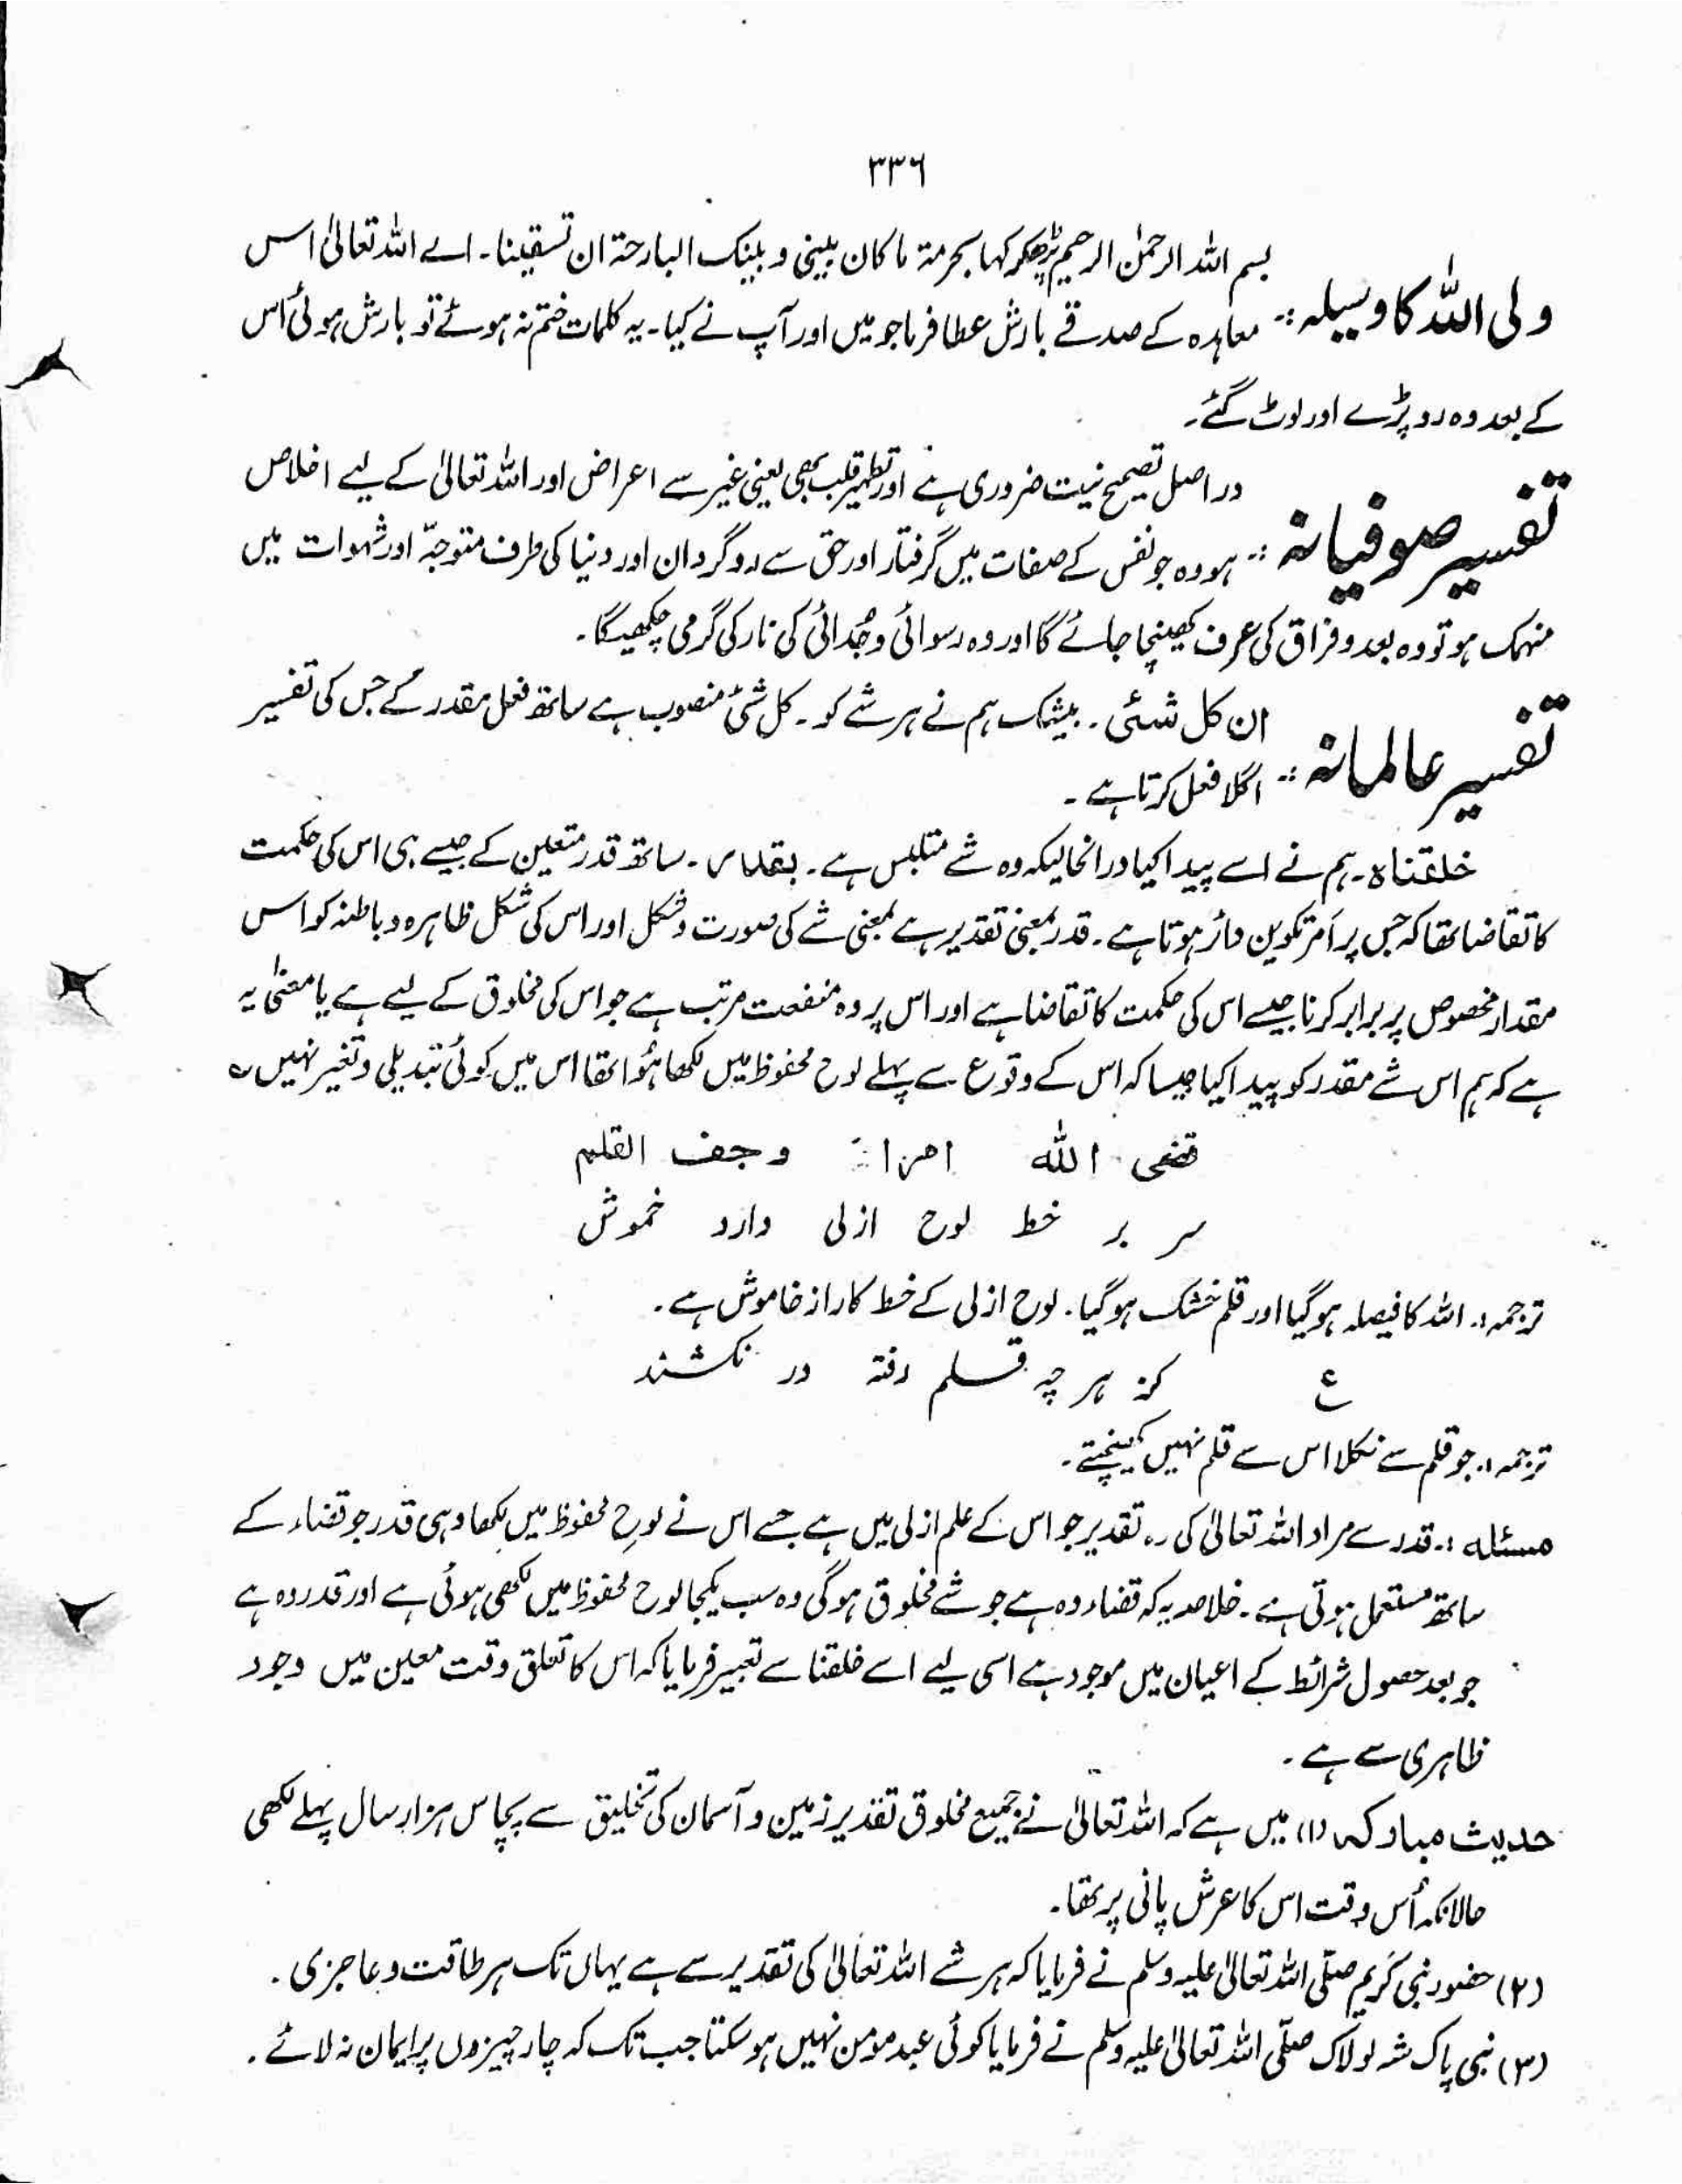 ۳۳۶
بسم اللہ الرحمٰن الرحیم پڑھکر کہا بحرمۃ ما کان بینی و بینک البارحۃ ان تسقینا۔ اے اللہ تعالیٰ اس
ولی اللہ کا وسیلہ :۔ معاہدہ کے صدقے بارش عطا فرما جو میں اور آپ نے کیا۔ یہ کلمات ختم نہ ہوئے تو بارش ہوئی اس
کے بعد وہ رو پڑے اور لوٹ گئے۔
در اصل تصحیح نیت ضروری ہے اور تطہیر قلب بھی یعنی غیر سے اعراض اور اللہ تعالیٰ کے لیے اخلاص
تفسیر صوفیانہ :۔ ہو وہ جو نفس کے صفات میں گرفتار اور حق سے روگردان اور دنیا کی طرف متوجہّ اور شہوات میں
منہمک ہو تو وہ بعد و فراق کی طرف کھینچا جائے گا اور وہ رسوائی و جُدائی کی نار کی گرمی چکھیگا۔
ان کل شئی۔ بیشک ہم نے ہر شے کو۔ کل شئ منصوب ہے ساتھ فعل مقدر کے جس کی تفسیر
تفسیر عالمانہ :۔ اگلا فعل کرتا ہے۔
خلقناہ۔ ہم نے اسے پیدا کیا درانحالیکہ وہ شے متلبس ہے۔ بقدر۔ ساتھ قدر متعین کے جیسے ہی اس کی حکمت
کا تقاضا تھا کہ جس پر اَمر تکوین دائر ہوتا ہے۔ قدر بمعنی تقدیر ہے بمعنی شے کی صورت و شکل اور اس کی شکل ظاہرہ و باطنہ کو اس
مقدار مخصوص پر برابر کرنا جیسے اس کی حکمت کا تقاضا ہے اور اس پر وہ منفعت مرتب ہے جو اس کی مخلوق کے لیے ہے یا معنیٰ یہ
ہے کہ ہم اس شے مقدر کو پیدا کیا جیسا کہ اس کے وقوع سے پہلے لوح محفوظ میں لکھا ہُوا تھا اس میں کوئی تبدیلی و تغیر نہیں ؎
قضی اللہ امرا وجف القلم
سر بر خط لوح ازلی دارد خموش
ترجمہ :۔ اللہ کا فیصلہ ہو گیا اور قلم خشک ہو گیا۔ لوح ازلی کے خط کا راز خاموش ہے۔
ع کز ہر چہ قلم رفتہ در نکشند
ترجمہ :۔ جو قلم سے نکلا اس سے قلم نہیں کھینچتے۔
مسئلہ :۔ قدر سے مراد اللہ تعالیٰ کی وہ تقدیر جو اس کے علم ازلی میں ہے جسے اس نے لوحِ محفوظ میں لکھا وہی قدر جو قضاء کے
ساتھ مستعمل ہوتی ہے۔ خلاصہ یہ کہ قضاء وہ ہے جو شے مخلوق ہوگی وہ سب یکجا لوح محفوظ میں لکھی ہوئی ہے اور قدر وہ ہے
جو بعد حصول شرائط کے اعیان میں موجود ہے اسی لیے اسے خلقنا سے تعبیر فرمایا کہ اس کا تعلق وقت معین میں وجود
ظاہری سے ہے۔
حدیث مبارکہ (۱) میں ہے کہ اللہ تعالیٰ نے جمیع مخلوق تقدیر زمین و آسمان کی تخلیق سے پچاس ہزار سال پہلے لکھی
حالانکہ اُس وقت اس کا عرش پانی پر تھا۔
(۲) حضور نبی کریم صلّی اللہ تعالیٰ علیہ وسلم نے فرمایا کہ ہر شے اللہ تعالیٰ کی تقدیر سے ہے یہاں تک ہر طاقت و عاجزی۔
(۳) نبی پاک شہ لولاک صلّی اللہ تعالیٰ علیہ وسلم نے فرمایا کوئی عبد مومن نہیں ہو سکتا جب تک کہ چار چیزوں پر ایمان نہ لائے۔